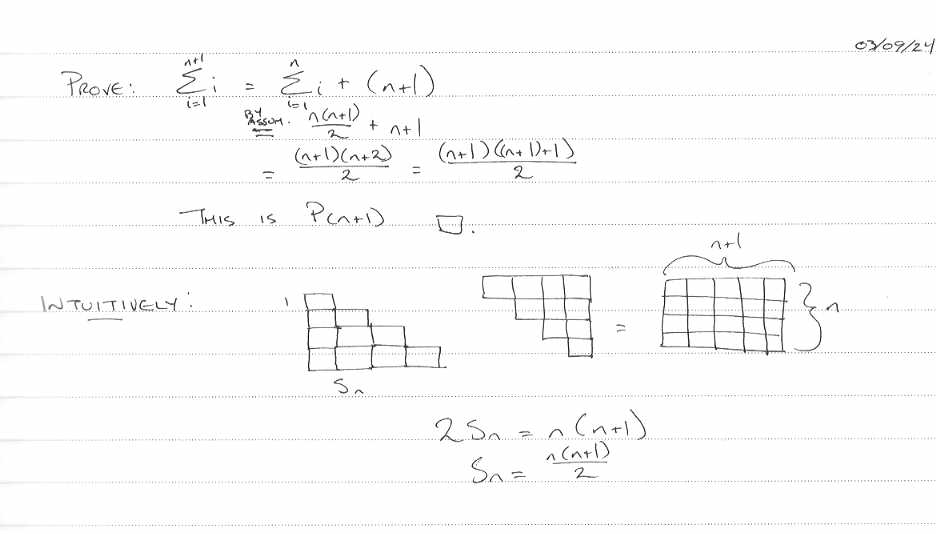 03/09/24
PROVE: \sum_{i=1}^{n+1} i = \sum_{i=1}^{n} i + (n+1)
BY ASSUM. = \frac{n(n+1)}{2} + n+1
= \frac{(n+1)(n+2)}{2} = \frac{(n+1)((n+1)+1)}{2}
THIS IS P(n+1) □.
n+1
INTUITIVELY: 1 = n
S_n
2S_n = n(n+1)
S_n = \frac{n(n+1)}{2}